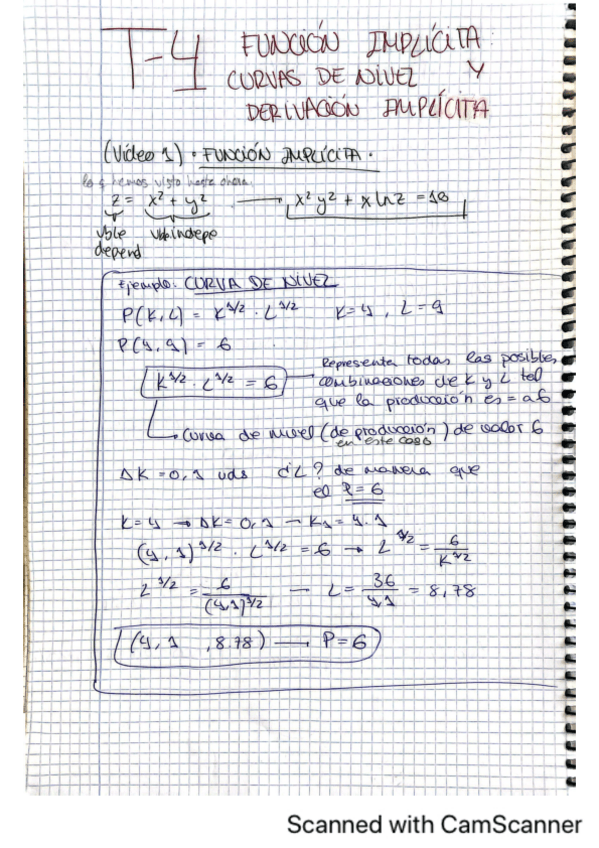 T-4 FUNCIÓN IMPLÍCITA:
CURVAS DE NIVEL Y
DERIVACIÓN IMPLÍCITA
(Video 1) · FUNCIÓN IMPLÍCITA ·
lo q hemos visto hasta ahora
z = x² + y² → x² y² + x ln z = 18
vble vble indepe
depend
Ejemplo: CURVA DE NIVEL
P(K, L) = K^1/2 · L^1/2 K=4, L=9
P(4, 9) = 6
K^1/2 · L^1/2 = 6
Representa todas las posibles
combinaciones de K y L tal
que la producción es = a 6
· Curva de nivel (de producción) de valor 6
en este caso
ΔK = 0,1 uds d'L? de manera que
el P = 6
K=4 → ΔK = 0,1 → K₁ = 4.1
(4,1)^1/2 · L^1/2 = 6 → L^1/2 = 6/K^1/2
L^1/2 = 6/(4,1)^1/2 → L = 36/4,1 = 8,78
(4,1 , 8.78) → P=6
Scanned with CamScanner